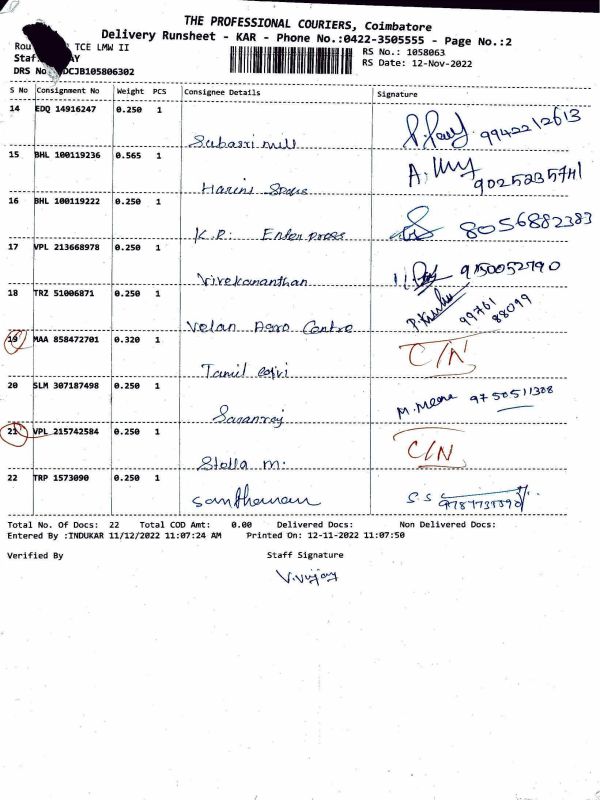 THE PROFESSIONAL COURIERS, Coimbatore
Delivery Runsheet - KAR - Phone No.:0422-3505555 - Page No.:2
Rou TCE LMW II
RS No.: 1058063
Staf AY
RS Date: 12-Nov-2022
DRS No DCJB105806302
S No Consignment No Weight PCS Consignee Details Signature
14 EDQ 14916247 0.250 1 Sabasri mill 9942212613
15 BHL 100119236 0.565 1 Harini 9025235741
16 BHL 100119222 0.250 1 K.P. Enter prass 8056882383
17 VPL 213668978 0.250 1 Vivekananthan 9150052790
18 TRZ 51006871 0.250 1 Velan Agro Centre 99761 88099
19 MAA 858472701 0.320 1 Tamil C/N
20 SLM 307187498 0.250 1 Saranraj M. Meena 9750511308
21 VPL 215742584 0.250 1 Stella m. C/N
22 TRP 1573090 0.250 1 Santhanam S.S
Total No. Of Docs: 22 Total COD Amt: 0.00 Delivered Docs: Non Delivered Docs:
Entered By :INDUKAR 11/12/2022 11:07:24 AM Printed On: 12-11-2022 11:07:50
Verified By Staff Signature
V.vijay